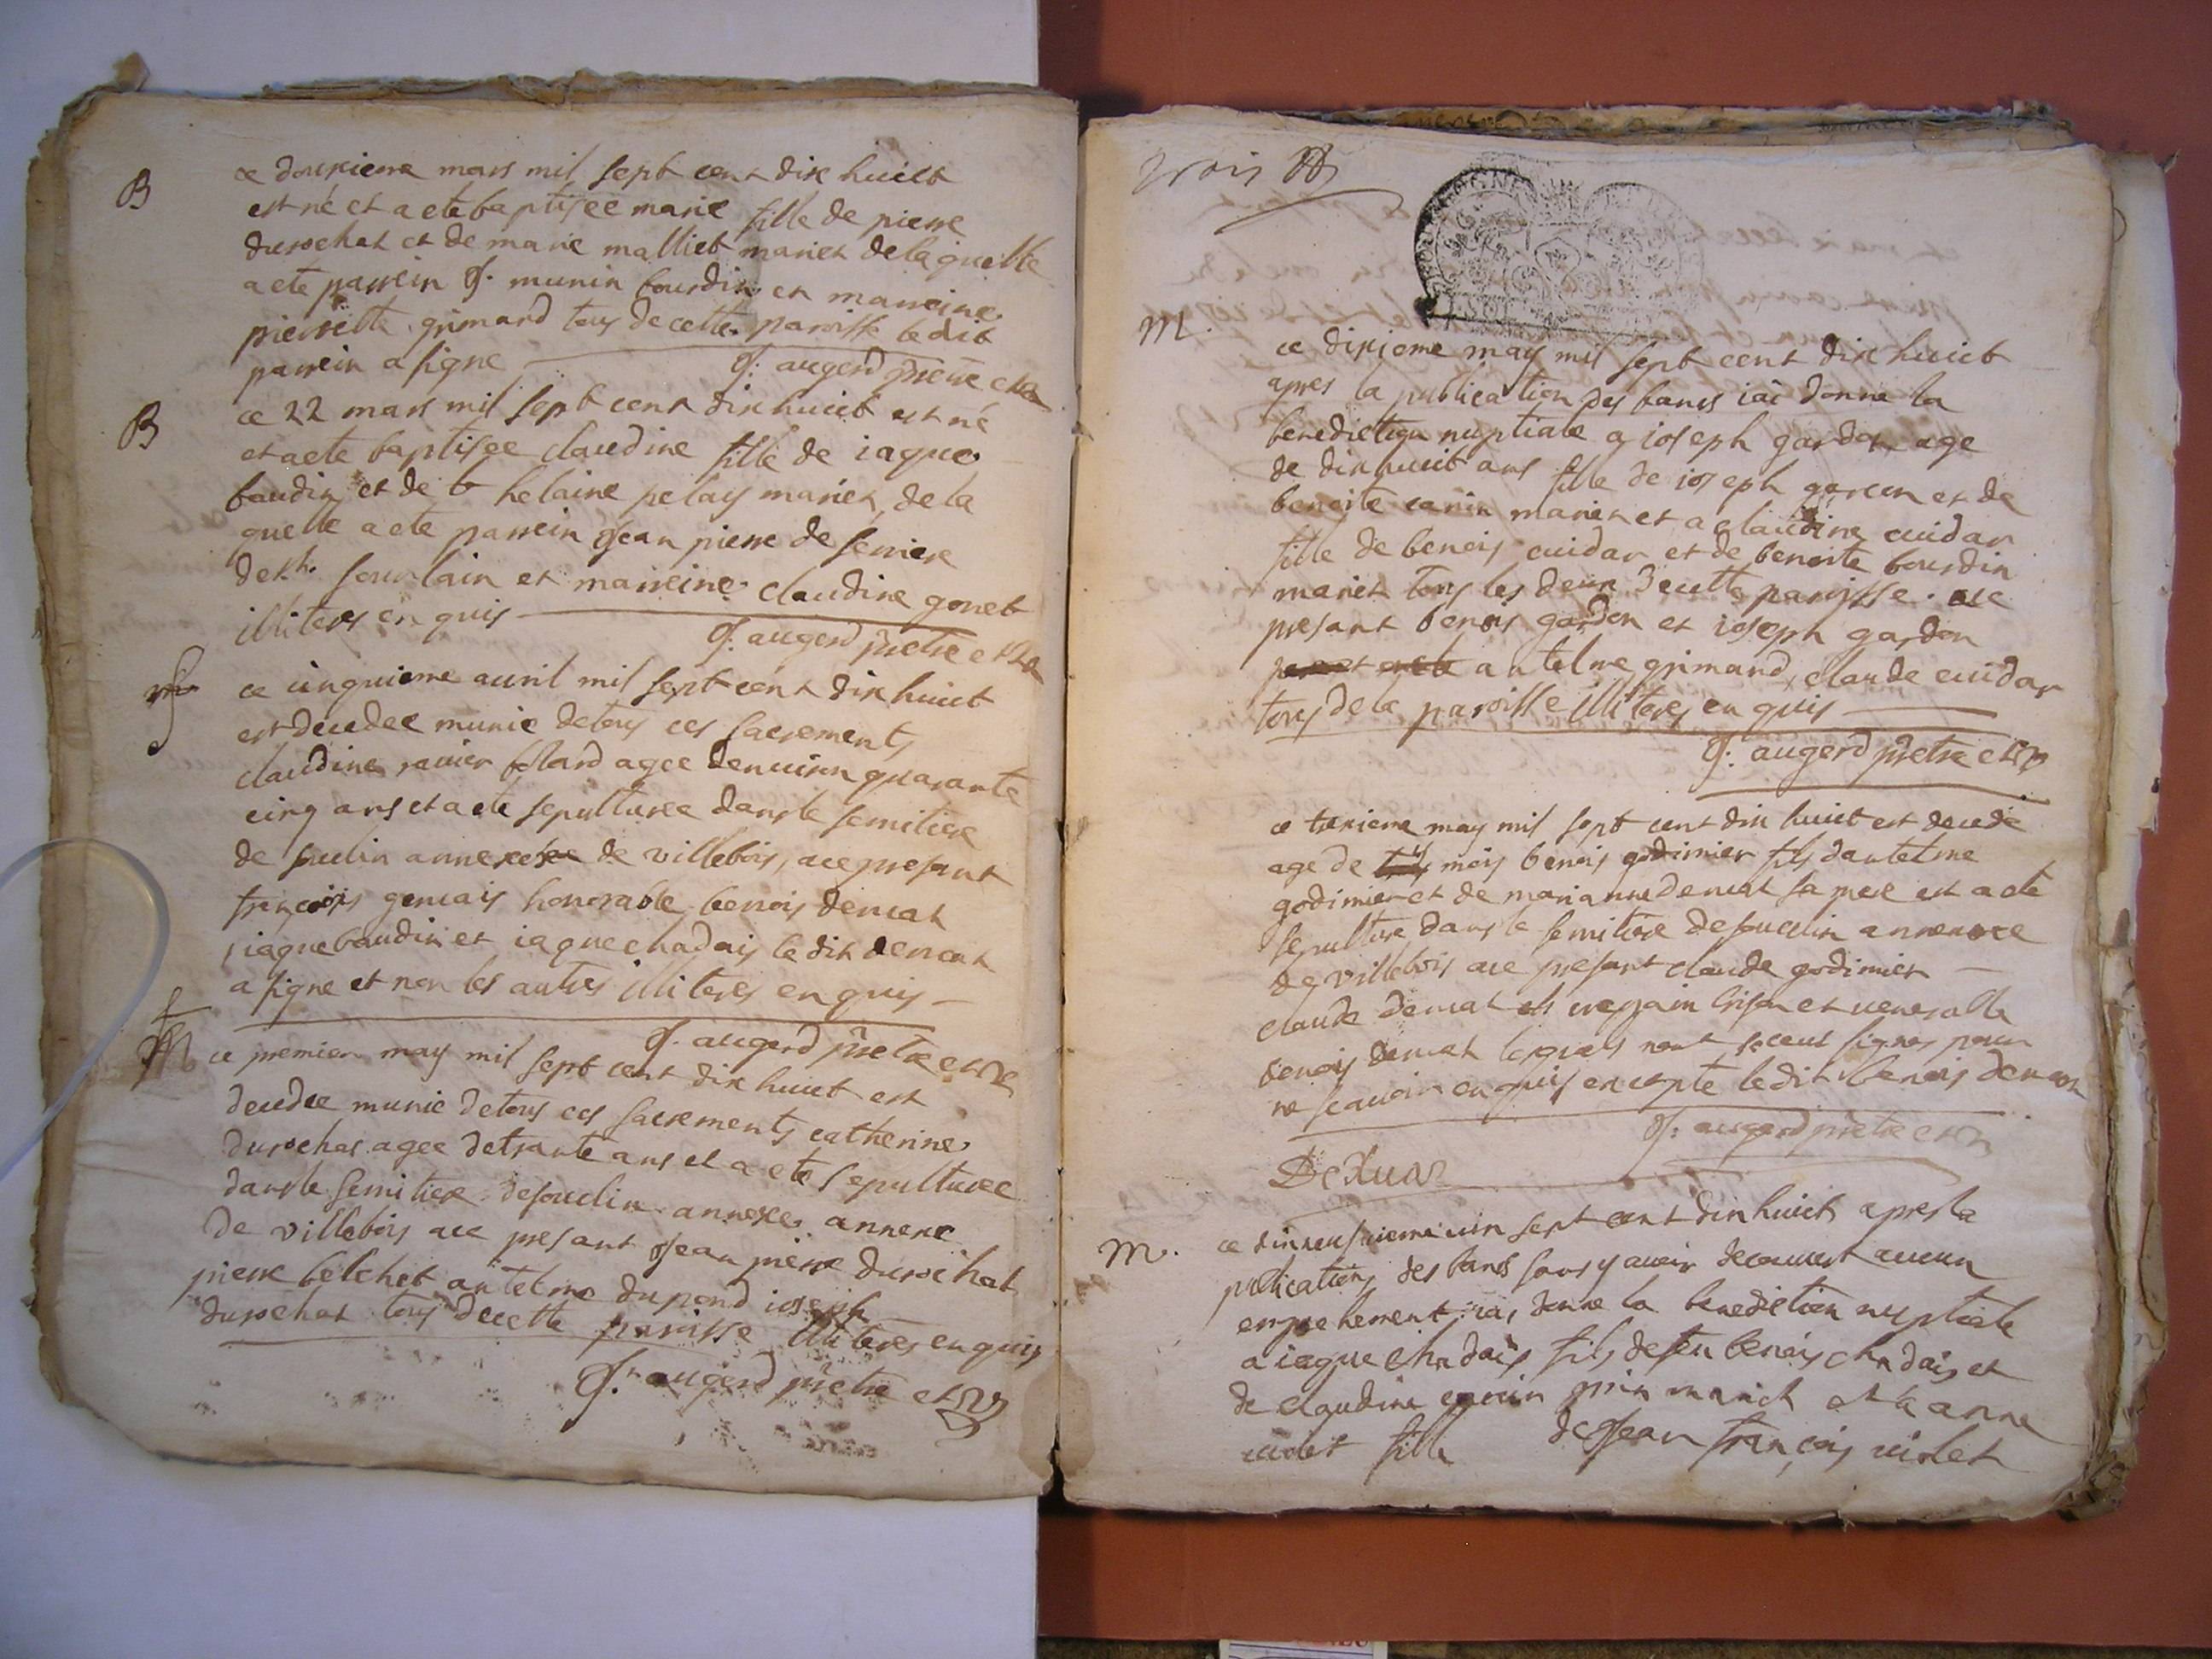 B
ce douxieme mars mil sept cent dix huict
est né et a ete baptisee marie fille de pierre
durochat et de marie malliet mariez de laquelle
a ete parrein J. munin bourdin et marreine
pierrette grimard tous de cette paroisse ledit
parrein a signe
J. augerd prêtre
B
ce 22 mars mil sept cent dix huict est né
et a ete baptisee claudine fille de iaque
baudin et de helaine pelay mariez, de la
quelle a ete parrein Jean pierre de serriere
de st. sourlain et marreine claudine gonet
illiteres enquis
J. augerd prêtre
ce cinquieme avril mil sept cent dix huict
est decedee munie de tous ces sacrements
claudine ravier agee denviron quarante
cinq ans et a ete sepulturee dans le semitiere
de souclin annexe de villebois, ace presant
françois gervais honorable benois demat
iaque baudin et iaque chadais le dit demat
a signe et non les autres illiteres enquis
J. augerd prêtre
ce premier may mil sept cent dix huict est
decedee munie de tous ces sacrements catherine
durochat agee de trante ans et a ete sepulturee
dans le semitiere de souclin annexe annexe
de villebois ace presant Jean pierre durochat
pierre belchet antelme dupond ioseph
durochat tous de cette paroisse illiteres enquis
J. augerd prêtre
trois
M.
ce dixieme may mil sept cent dix huict
apres la publication des bancs iai donne la
benediction nuptiale a ioseph gardon age
de dix huict ans fils de ioseph garcon et de
benoite carrin mariez et a claudine cuidar
fille de benois cuidar et de benoite bourdin
mariez tous les deux de cette paroisse. ace
presant benois gardon et ioseph gardon
antelme grimard, claude cuidar
tous de la paroisse illiteres enquis
J. augerd prêtre
ce treixieme may mil sept cent dix huict est decede
age de mois benois godimier fils dantelme
godimier et de marianne demat sa mere et a ete
sepulture dans le semitiere de souclin annexe
de villebois ace presant claude godimier
claude demat et et venerable
benois demat lesquels nont sceus signer pour
ne scavoir enquis excepte ledit benois demat
J. augerd prêtre
Demat
m.
ce dixneufvieme iuin sept cent dix huict apres la
publications des bancs sans y avoir decouvert aucun
empechement iai donne la benediction nuptiale
a iaque chadais fils de feu benois chadais et
de claudine mariez et a anne
violet fille de Jean françois violet